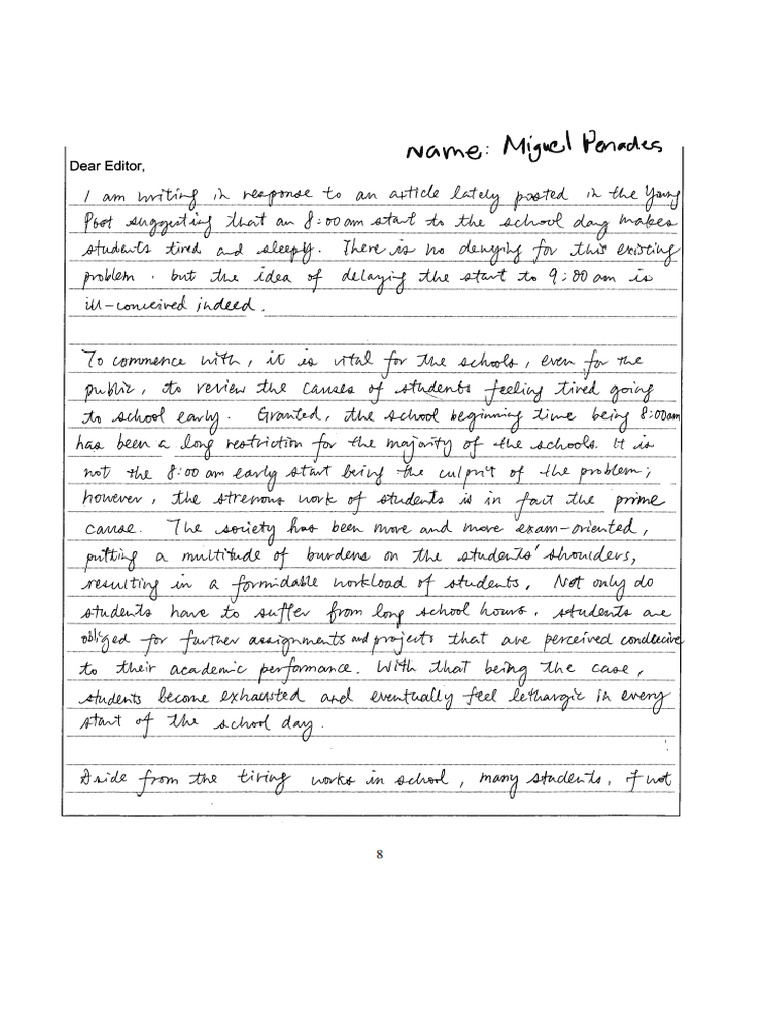 Name: Miguel Penades
Dear Editor,
I am writing in response to an article lately posted in the Young
Post suggesting that an 8:00 am start to the school day makes
students tired and sleepy. There is no denying for this existing
problem, but the idea of delaying the start to 9:00 am is
ill-conceived indeed.
To commence with, it is vital for the schools, even for the
public, to review the causes of students feeling tired going
to school early. Granted, the school beginning time being 8:00am
has been a long restriction for the majority of the schools. It is
not the 8:00 am early start being the culprit of the problem;
however, the strenous work of students is in fact the prime
cause. The society has been more and more exam-oriented,
putting a multitude of burdens on the students' shoulders,
resulting in a formidable workload of students. Not only do
students have to suffer from long school hours, students are
obliged for further assignments and projects that are perceived conducive
to their academic performance. With that being the case,
students become exhausted and eventually feel lethargic in every
start of the school day.
Aside from the tiring works in school, many students, if not
8